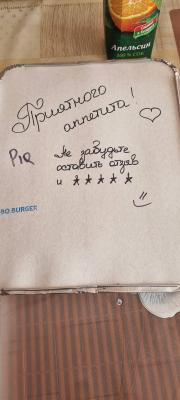 Апельсин
100 % СОК
Приятного
аппетита! ♡
Не забудьте
оставить отзыв
и ★★★★★
BO.BURGER